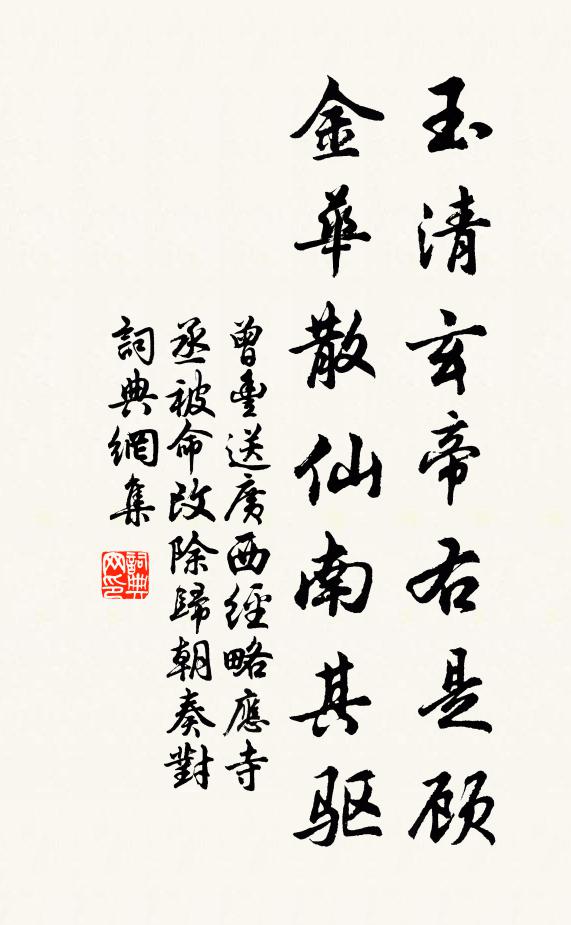 玉清玄帝右是顾
金華散仙南其驱
曾豊送廣西經略應寺
丞被命改除歸朝奏對
詞典網集
詞典
网印